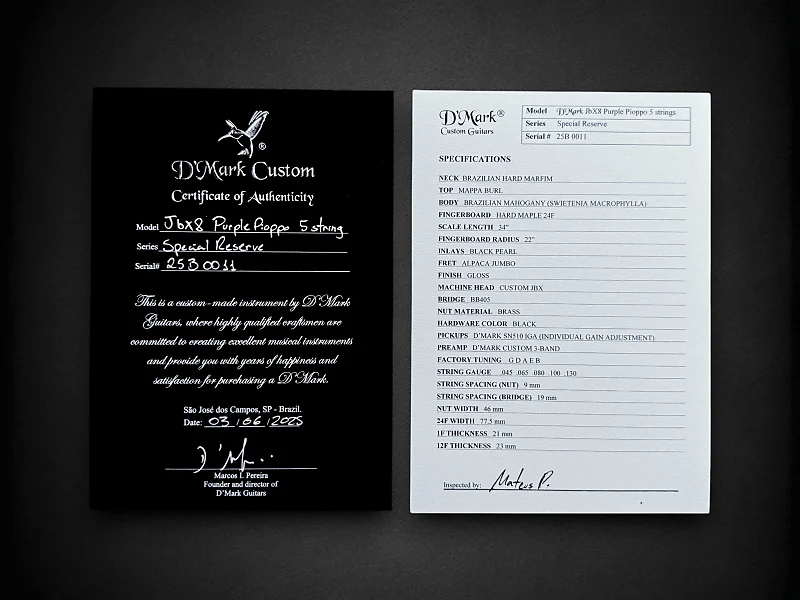 ®
D'Mark Custom
Certificate of Authenticity
Model JbX8 Purple Pioppo 5 string
Series Special Reserve
Serial# 25B 0011
This is a custom-made instrument by D'Mark
Guitars, where highly qualified craftsmen are
committed to creating excellent musical instruments
and provide you with years of happiness and
satisfaction for purchasing a D'Mark.
São José dos Campos, SP - Brazil.
Date: 03 / 06 / 2025
D'M..
Marcos I. Pereira
Founder and director of
D'Mark Guitars
D'Mark®
Custom Guitars
Model D'Mark JbX8 Purple Pioppo 5 strings
Series Special Reserve
Serial # 25B 0011
SPECIFICATIONS
NECK BRAZILIAN HARD MARFIM
TOP MAPPA BURL
BODY BRAZILIAN MAHOGANY (SWIETENIA MACROPHYLLA)
FINGERBOARD HARD MAPLE 24F
SCALE LENGTH 34"
FINGERBOARD RADIUS 22"
INLAYS BLACK PEARL
FRET ALPACA JUMBO
FINISH GLOSS
MACHINE HEAD CUSTOM JBX
BRIDGE BB405
NUT MATERIAL BRASS
HARDWARE COLOR BLACK
PICKUPS D'MARK SN510 IGA (INDIVIDUAL GAIN ADJUSTMENT)
PREAMP D'MARK CUSTOM 3-BAND
FACTORY TUNING G D A E B
STRING GAUGE .045 .065 .080 .100 .130
STRING SPACING (NUT) 9 mm
STRING SPACING (BRIDGE) 19 mm
NUT WIDTH 46 mm
24F WIDTH 77.5 mm
1F THICKNESS 21 mm
12F THICKNESS 23 mm
Inspected by: Mateus P.